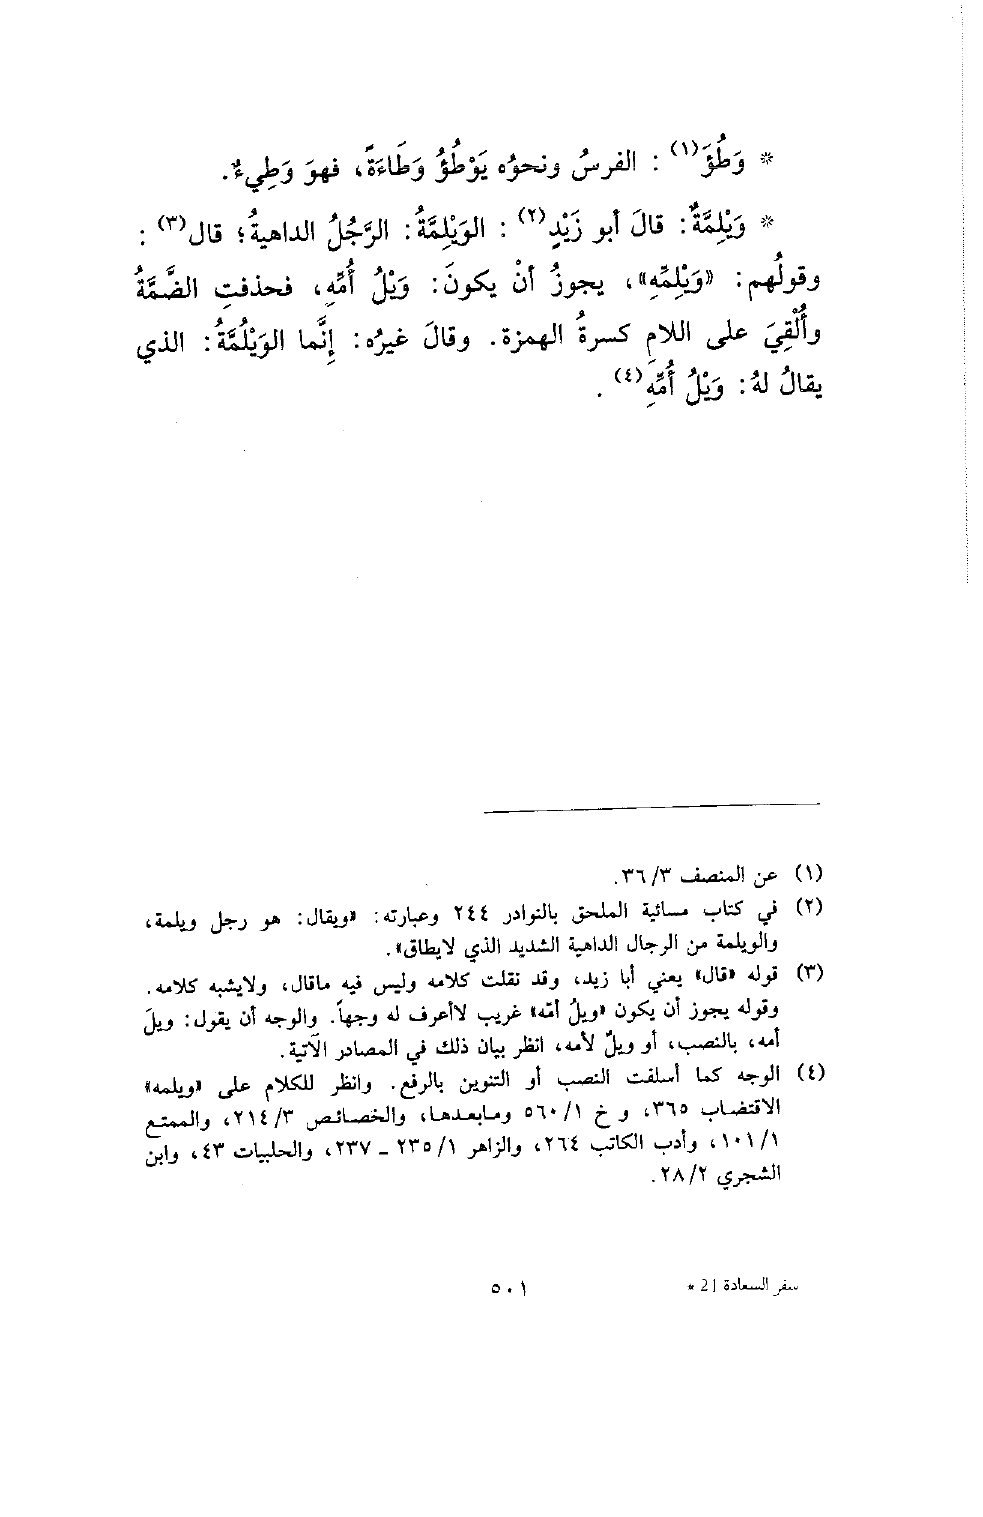 * وَطُؤَ(١) : الفرسُ ونحوُه يَوْطُؤُ وَطَاءَةً، فهوَ وَطِيءٌ.
* وَيْلِمَّةٌ: قالَ أبو زَيْدٍ(٢) : الوَيْلِمَّةُ: الرَّجُلُ الداهيةُ؛ قال(٣) :
وقولُهم: «وَيْلِمِّهِ»، يجوزُ أنْ يكونَ: وَيْلُ أُمِّهِ، فحذفتِ الضَّمَّةُ
وأُلْقِيَ على اللامِ كسرةُ الهمزة. وقالَ غيرُه: إِنَّما الوَيْلُمَّةُ: الذي
يقالُ لهُ: وَيْلُ أُمِّهِ(٤) .
(١) عن المنصف ٣٦/٣.
(٢) في كتاب مسائية الملحق بالنوادر ٢٤٤ وعبارته: «ويقال: هو رجل ويلمة،
والويلمة من الرجال الداهية الشديد الذي لايطاق».
(٣) قوله «قال» يعني أبا زيد، وقد نقلت كلامه وليس فيه ماقال، ولايشبه كلامه.
وقوله يجوز أن يكون «ويلُ أمّه» غريب لاأعرف له وجهاً. والوجه أن يقول: ويلَ
أمه، بالنصب، أو ويلٌ لأمه، انظر بيان ذلك في المصادر الآتية.
(٤) الوجه كما أسلفت النصب أو التنوين بالرفع. وانظر للكلام على «ويلمه»
الاقتضاب ٣٦٥، و خ ٥٦٠/١ ومابعدها، والخصائص ٢١٤/٣، والممتع
١٠١/١، وأدب الكاتب ٢٦٤، والزاهر ٢٣٥/١ ـ ٢٣٧، والحلبيات ٤٣، وابن
الشجري ٢٨/٢.
سفر السعادة 2J *
٥٠١